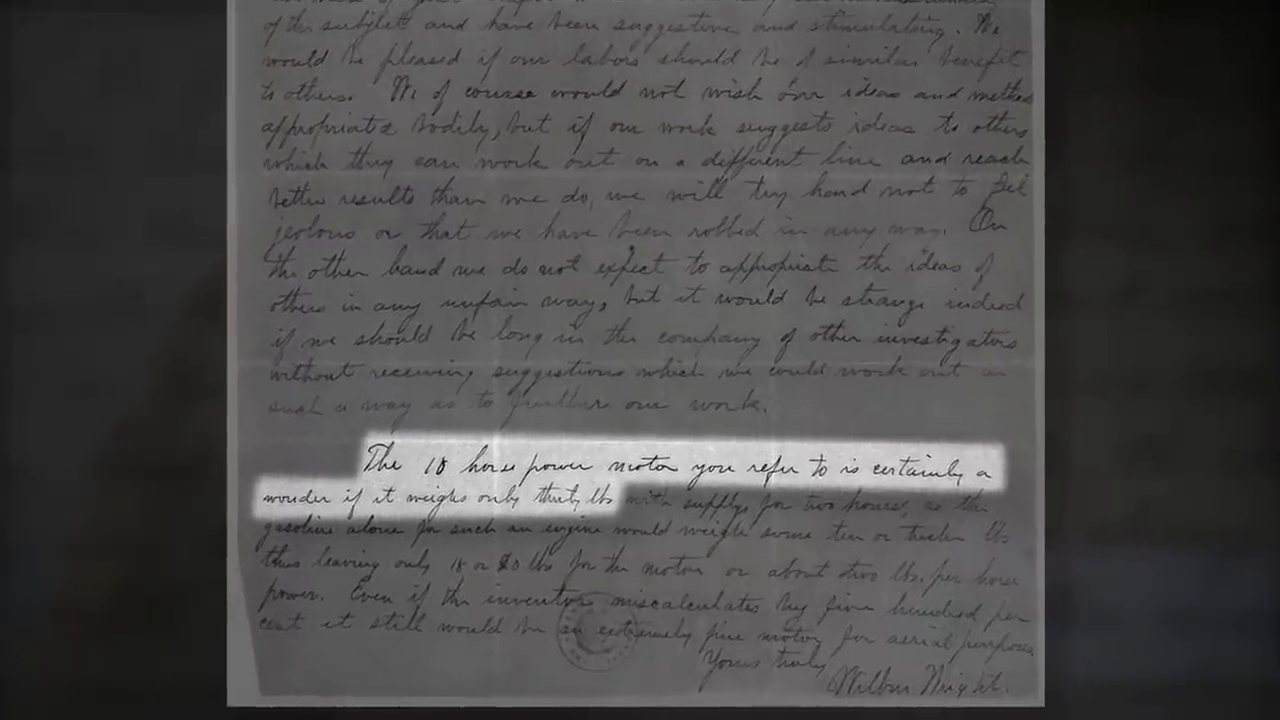 of the subject and have been suggestive and stimulating. We
would be pleased if our labors should be of similar benefit
to others. We of course would not wish our ideas and methods
appropriated bodily, but if our work suggests ideas to others
which they can work out on a different line and reach
better results than we do, we will try hard not to feel
jealous or that we have been robbed in any way. On
the other hand we do not expect to appropriate the ideas of
others in any unfair way, but it would be strange indeed
if we should be long in the company of other investigators
without receiving suggestions which we could work out in
such a way as to further our work.
The 10 horse power motor you refer to is certainly a
wonder if it weighs only thirty lbs with supplys for two hours, as the
gasoline alone for such an engine would weigh some ten or twelve lbs
thus leaving only 18 or 20 lbs for the motor or about two lbs. per horse
power. Even if the inventor miscalculates by five hundred per
cent it still would be an extremely fine motor for aerial purposes
Yours truly
Wilbur Wright.